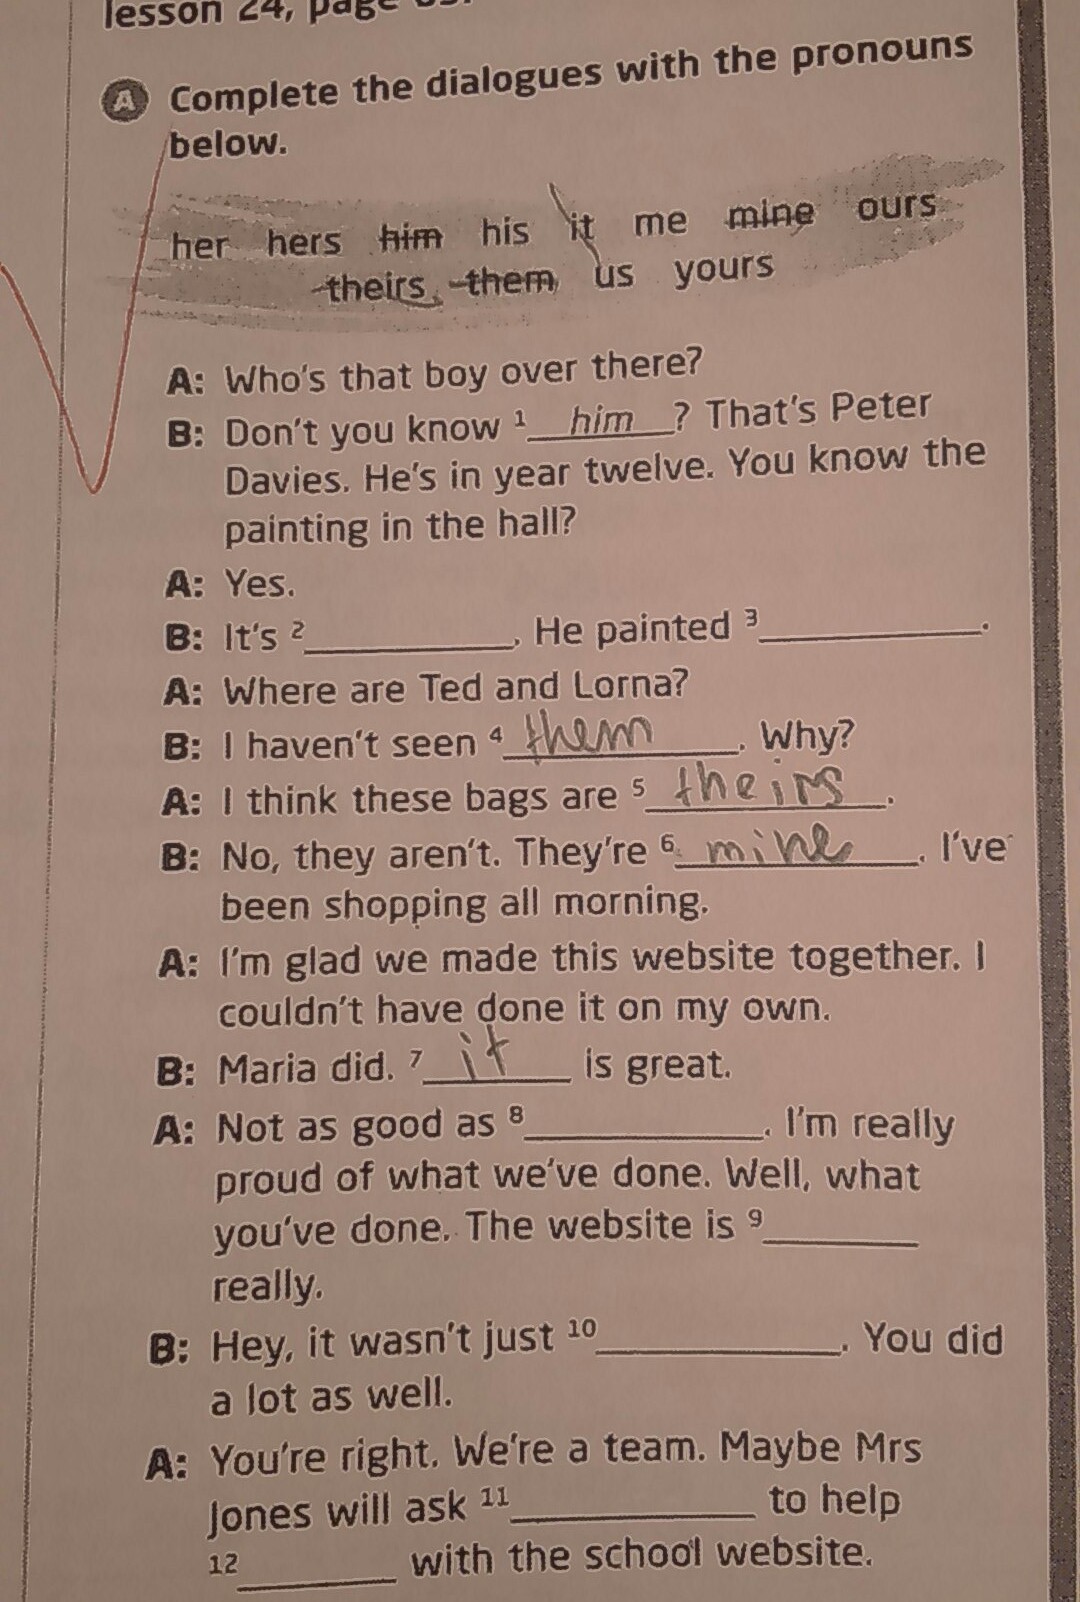 lesson 24, page
A Complete the dialogues with the pronouns
below.
her hers him his it me mine ours
theirs them us yours
A: Who's that boy over there?
B: Don't you know 1 him ? That's Peter
Davies. He's in year twelve. You know the
painting in the hall?
A: Yes.
B: It's 2 ________. He painted 3 ________.
A: Where are Ted and Lorna?
B: I haven't seen 4 them. Why?
A: I think these bags are 5 theirs.
B: No, they aren't. They're 6 mine. I've
been shopping all morning.
A: I'm glad we made this website together. I
couldn't have done it on my own.
B: Maria did. 7 it is great.
A: Not as good as 8 ________. I'm really
proud of what we've done. Well, what
you've done. The website is 9 ________
really.
B: Hey, it wasn't just 10 ________. You did
a lot as well.
A: You're right. We're a team. Maybe Mrs
Jones will ask 11 ________ to help
12 ________ with the school website.